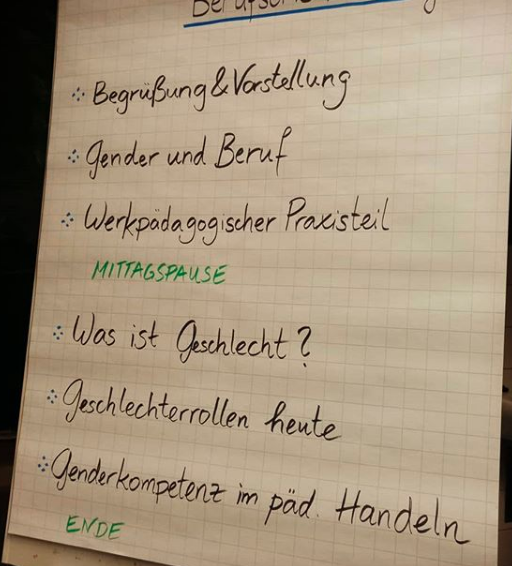 Begrüßung & Vorstellung
Gender und Beruf
Werkpädagogischer Praxisteil
MITTAGSPAUSE
Was ist Geschlecht?
Geschlechterrollen heute
Genderkompetenz im päd. Handeln
ENDE